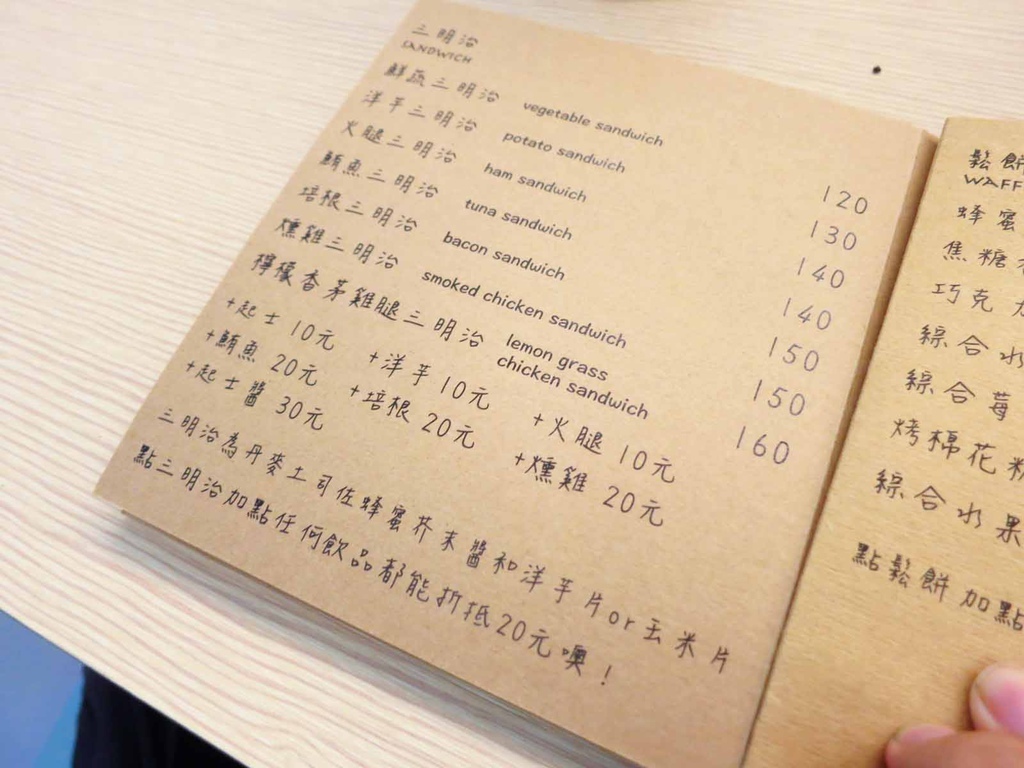 三明治
SANDWICH
鮮蔬三明治 vegetable sandwich 120
洋芋三明治 potato sandwich 130
火腿三明治 ham sandwich 140
鮪魚三明治 tuna sandwich 140
培根三明治 bacon sandwich 150
燻雞三明治 smoked chicken sandwich 150
檸檬香茅雞腿三明治 lemon grass chicken sandwich 160
+起士 10元 +洋芋 10元 +火腿 10元
+鮪魚 20元 +培根 20元 +燻雞 20元
+起士醬 30元
三明治為丹麥土司佐蜂蜜芥末醬和洋芋片or玉米片
點三明治加點任何飲品都能折抵20元噢!
鬆餅
WAFF
蜂蜜
焦糖
巧克
綜合水
綜合莓
烤棉花糖
綜合水果
點鬆餅加點